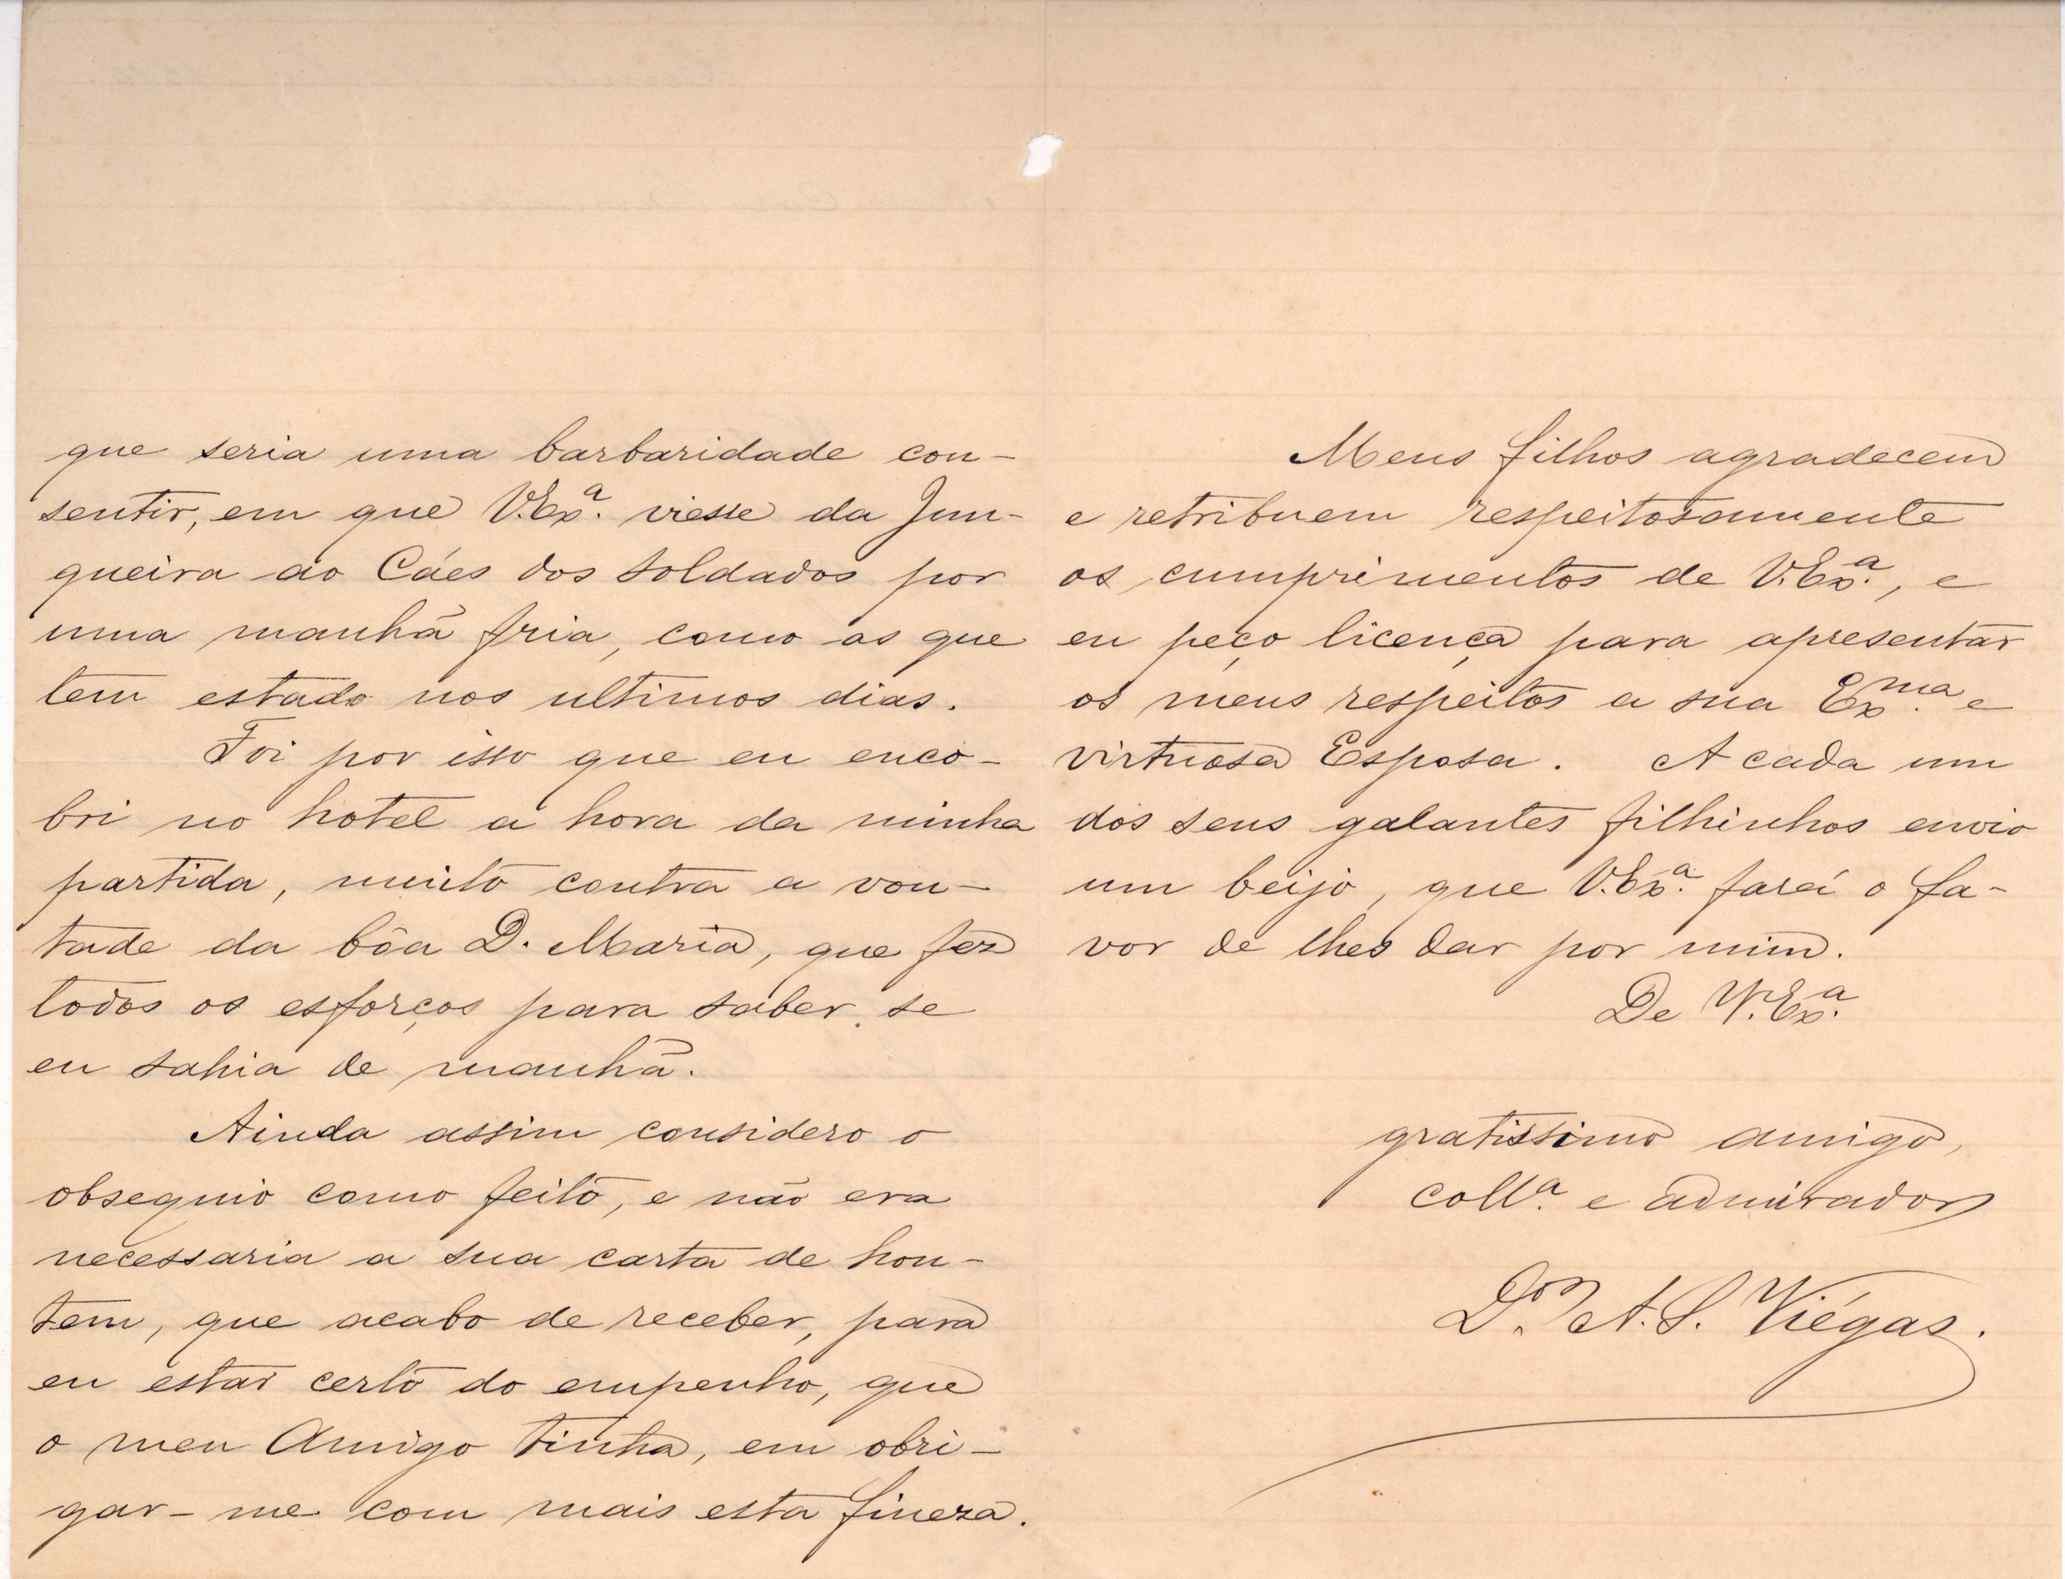 que seria uma barbaridade con-
sentir, em que V.Exª. viesse da Jun-
queira ao Cáes dos Soldados por
uma manhã fria, como as que
tem estado nos ultimos dias.
Foi por isso que eu enco-
bri no hotel a hora da minha
partida, muito contra a von-
tade da bôa D. Maria, que fez
todos os esforços para saber, se
eu sahia de manhã.
Ainda assim considero o
obsequio como feito, e não era
necessaria a sua carta de hon-
tem, que acabo de receber, para
eu estar certo do empenho, que
o meu Amigo tinha, em obri-
gar-me com mais esta fineza.
Meus filhos agradecem
e retribuem respeitosamente
os cumprimentos de V.Exª., e
eu peço licença para apresentar
os meus respeitos a sua Exma. e
virtuosa Esposa. A cada um
dos seus galantes filhinhos envio
um beijo, que V.Exª. fará o fa-
vor de lhes dar por mim.
De V.Exª.
gratissimo amigo,
collª. e admirador
Dor. A. S. Viégas.